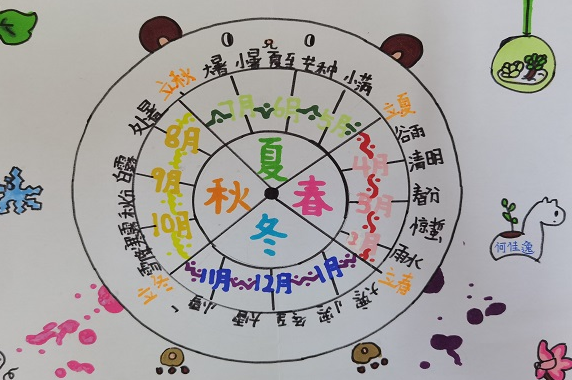 立秋
大暑
小暑
夏至
芒种
小满
立夏
谷雨
清明
春分
惊蛰
雨水
立春
大寒
小寒
冬至
大雪
小雪
立冬
霜降
寒露
秋分
白露
处暑
7月
6月
5月
4月
3月
2月
1月
12月
11月
10月
9月
8月
夏
春
冬
秋
何佳逸